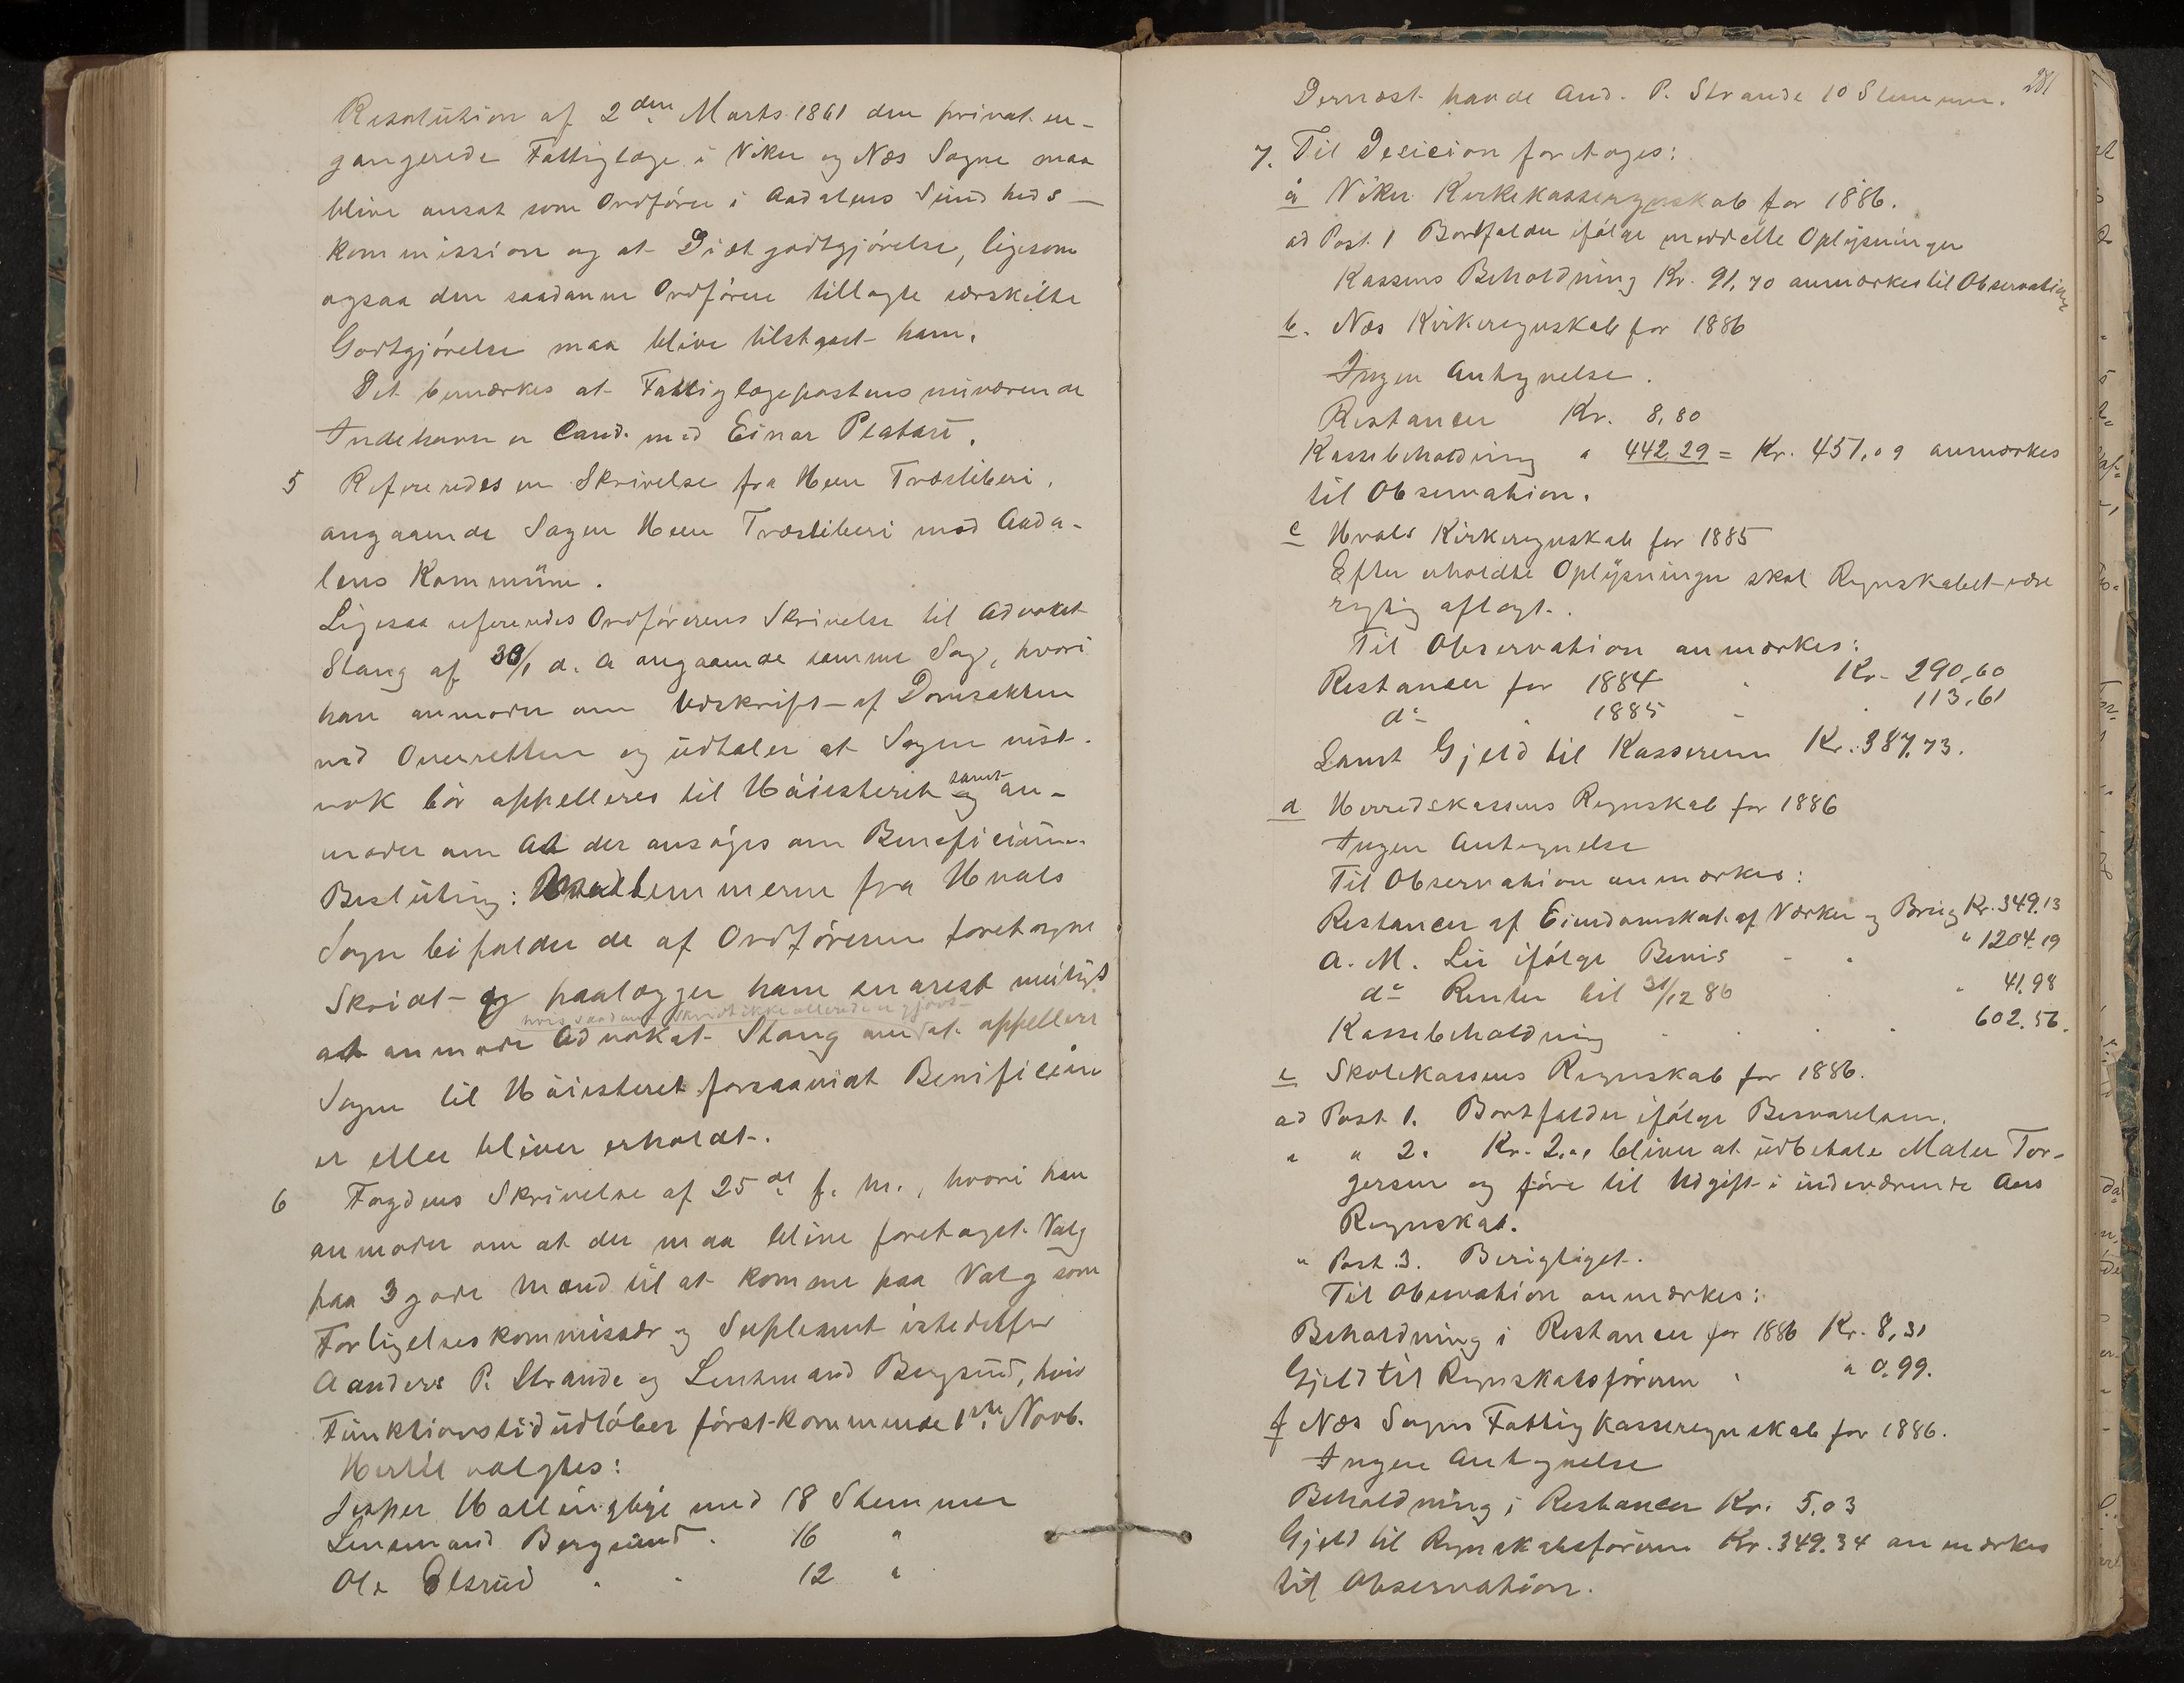 Resolution af 2den Marts 1861 den privat en-
gangerede Fattiglæge i Viker og Næs Sogne maa
blive ansat som Ordfører i Aadalens Sundheds-
kommission og at Diætgodtgjørelse, ligesom
ogsaa den saadanne Ordførere tillagte særskilte
Godtgjørelse maa blive tilstaaet ham.
Det bemærkes at Fattiglægepostens nuværende
Indehaver er Cand. med Einar Platou.
5 Refereredes en Skrivelse fra Heen Træsliberi,
angaaende Sagen Heen Træsliberi mod Aada-
lens Kommune.
Ligesaa refereredes Ordførerens Skrivelse til Advokat
Stang af 30/1 d. A angaaende samme Sag, hvori
han anmoder om Udskrift af Domsakten
ved Overretten og udtaler at Sagen vist-
nok bør appelleres til Høiesteret samt an-
moder om at der ansøges om Beneficium.
Beslutning: Medlemmerne fra Hvals
Sogn bifalder de af Ordføreren foretagne
Skridt og paalægger ham snarest muligt
hvis saadanne Skridt ikke allerede er gjort
at anmode Advokat Stang om at appellere
Sagen til Høiesteret forsaavidt Benificium
er eller bliver erholdt.
6 Fogdens Skrivelse af 25de f. M., hvori han
anmoder om at der maa blive foretaget Valg
paa 3 gode Mænd til at komme paa Valg som
Forligelseskommissær og Suplesant istedetfor
Aanders P. Strande og Lensmand Bergsund, hvis
Funktionstid udløber først-kommende 1ste Novb.
Hertil valgtes:
Jesper Hallingbye med 18 Stemmer
Lensmand Bergsund . 16 "
Ole Elsrud " " 12 "
281
Dernæst havde And. P. Strande 10 Stemmer.
7. Til Desicion foretoges:
a Viker Kirkekasseregnskab for 1886.
ad Post 1 Bortfalder ifølge meddelte Oplysninger
Kassens Beholdning Kr. 91,70 anmærkes til Observation
b. Næs Kirkeregnskab for 1886
Ingen Antegnelse.
Restancer Kr. 8,80
Kassebeholdning " 442,29 = Kr. 451,09 anmærkes
til Observation.
c Hvals Kirkeregnskab for 1885
Efter erholdte Oplysninger skal Regnskabet være
rigtig aflagt.
Til Observation anmærkes:
Restancer for 1884 " Kr. 290,60
do " 1885 " " 113,61
Samt Gjeld til Kassereren Kr. 387,73.
d Herredskassens Regnskab for 1886
Ingen Antegnelse
Til Observation anmærkes:
Restancer af Eiendomskat af Værker og Brug Kr. 349.13
A. M. Lie ifølge Bevis - " " 1204.19
do Renter til 31/12 86 " " 41.98
Kassebeholdning . . . . 602.56.
e Skolekassens Regnskab for 1886.
ad Post 1. Bortfalder ifølge Besvarelsen.
" " 2. Kr. 2,"" bliver at udbetale Maler Tor-
gersen og føre til Udgift i indeværende Aars
Regnskab.
" Post 3. Berigtiget.
Til Observation anmærkes:
Beholdning i Restancer for 1886 Kr. 8,31
Gjeld til Regnskabsføreren " " 0.99.
f Næs Sogns Fattigkasseregnskab for 1886.
Ingen Antegnelse
Beholdning i Restancer Kr. 5,03
Gjeld til Regnskabsføreren Kr. 349.34 anmærkes
til Observation.